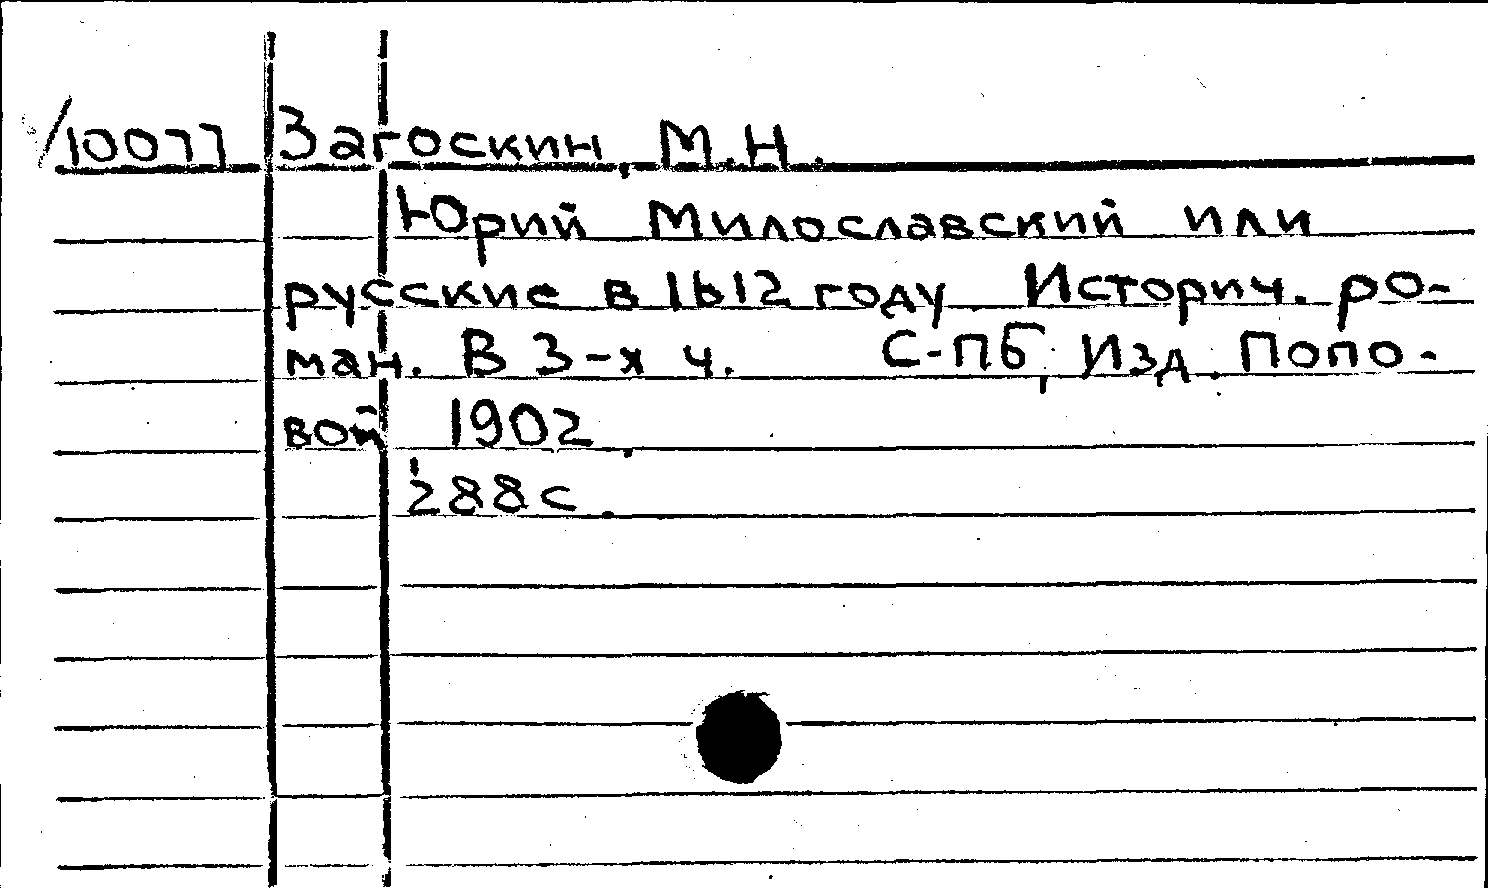 /10077 Загоскин, М.Н.
Юрий Милославский или
русские в 1612 году Историч. ро-
ман. В 3-х ч. С-ПБ, Изд. Попо-
вой 1902.
288с.